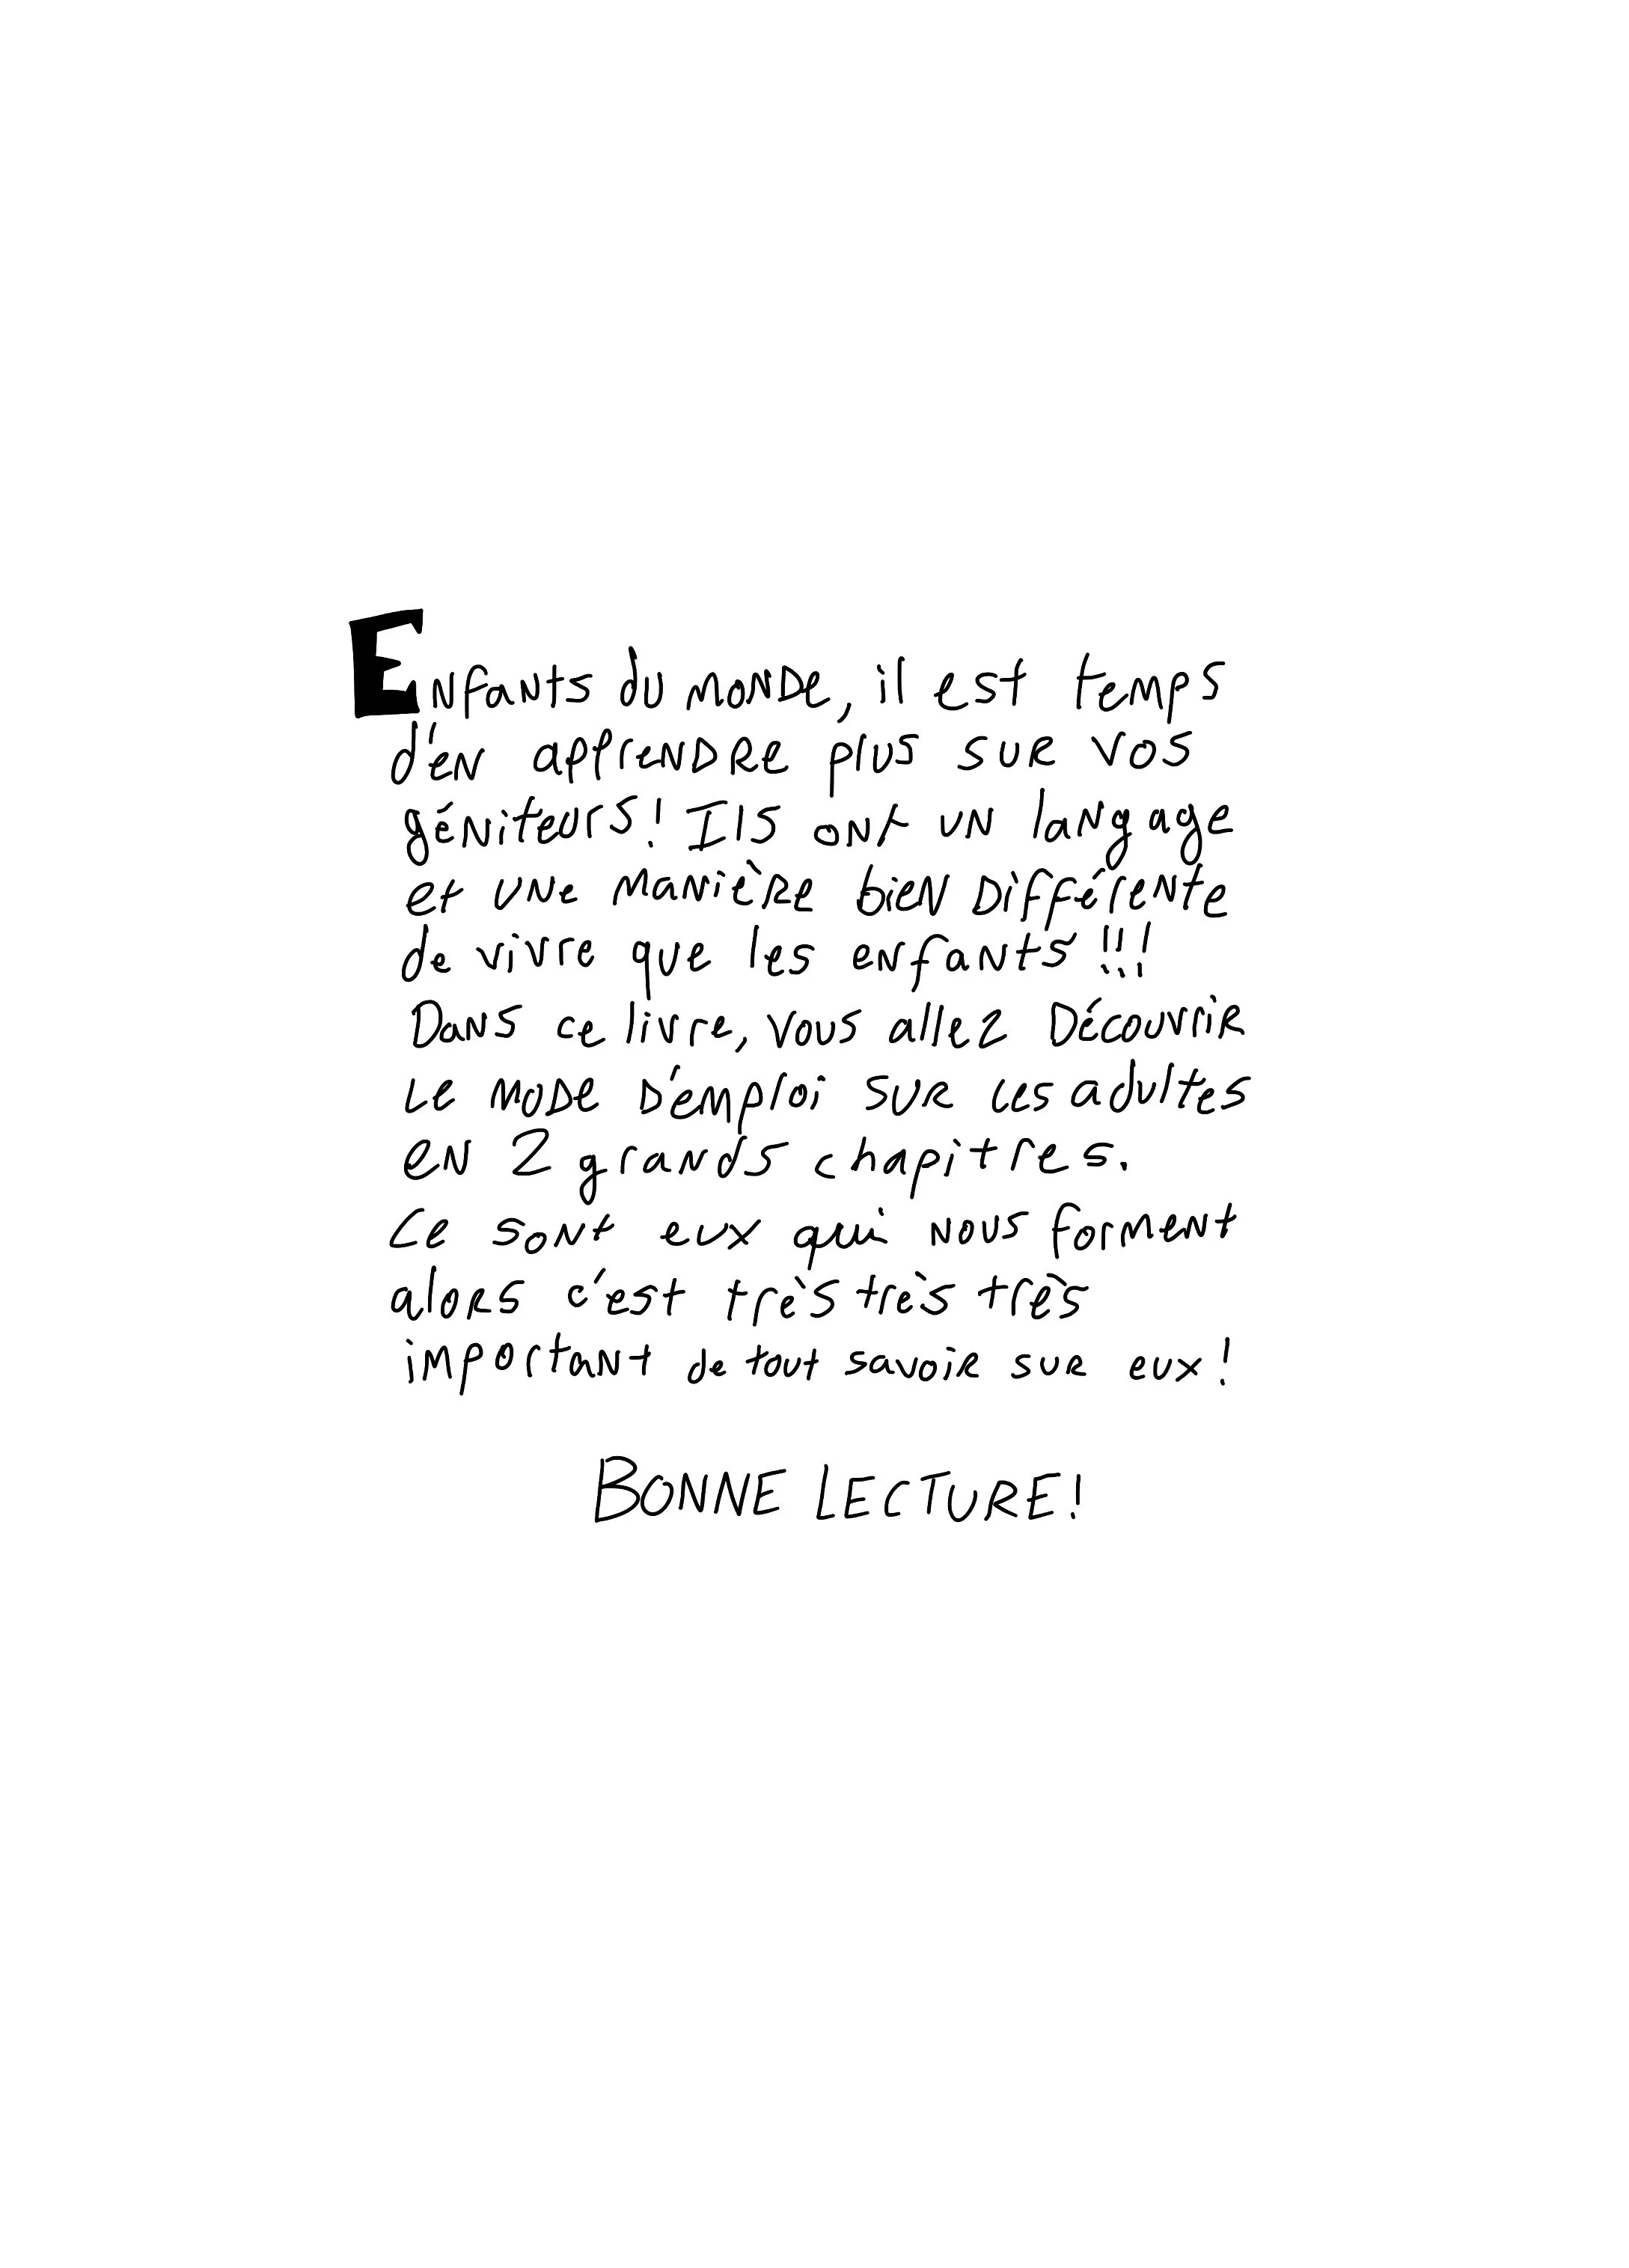 Enfants du monde, il est temps
d'en apprendre plus sur vos
géniteurs! Ils ont un langage
et une manière bien différente
de vivre que les enfants!!!
Dans ce livre, vous allez découvrir
le mode d'emploi sur ces adultes
en 2 grands chapitres.
Ce sont eux qui nous forment
alors c'est très très très
important de tout savoir sur eux!
BONNE LECTURE!